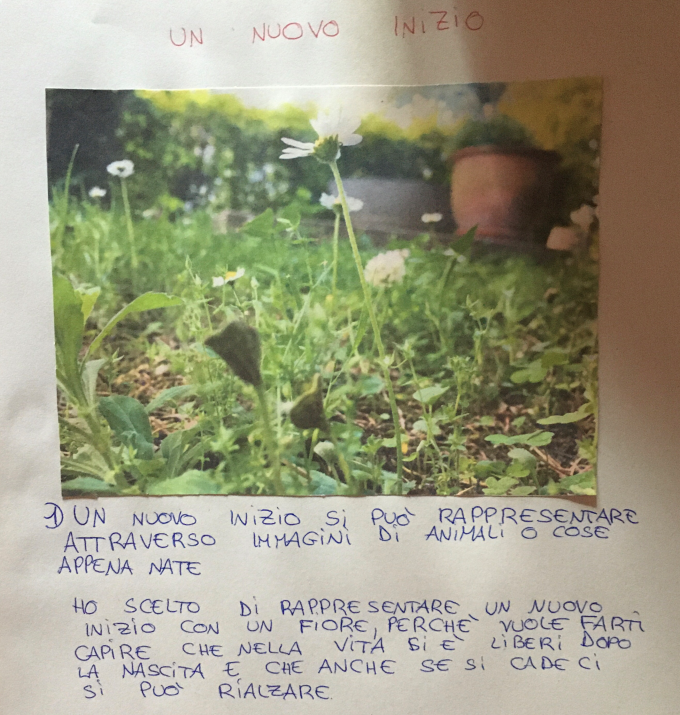 UN NUOVO INIZIO
1) UN NUOVO INIZIO SI PUÒ RAPPRESENTARE
ATTRAVERSO IMMAGINI DI ANIMALI O COSE
APPENA NATE
HO SCELTO DI RAPPRESENTARE UN NUOVO
INIZIO CON UN FIORE, PERCHÈ VUOLE FARTI
CAPIRE CHE NELLA VITA SI È LIBERI DOPO
LA NASCITA E CHE ANCHE SE SI CADE CI
SI PUÒ RIALZARE.